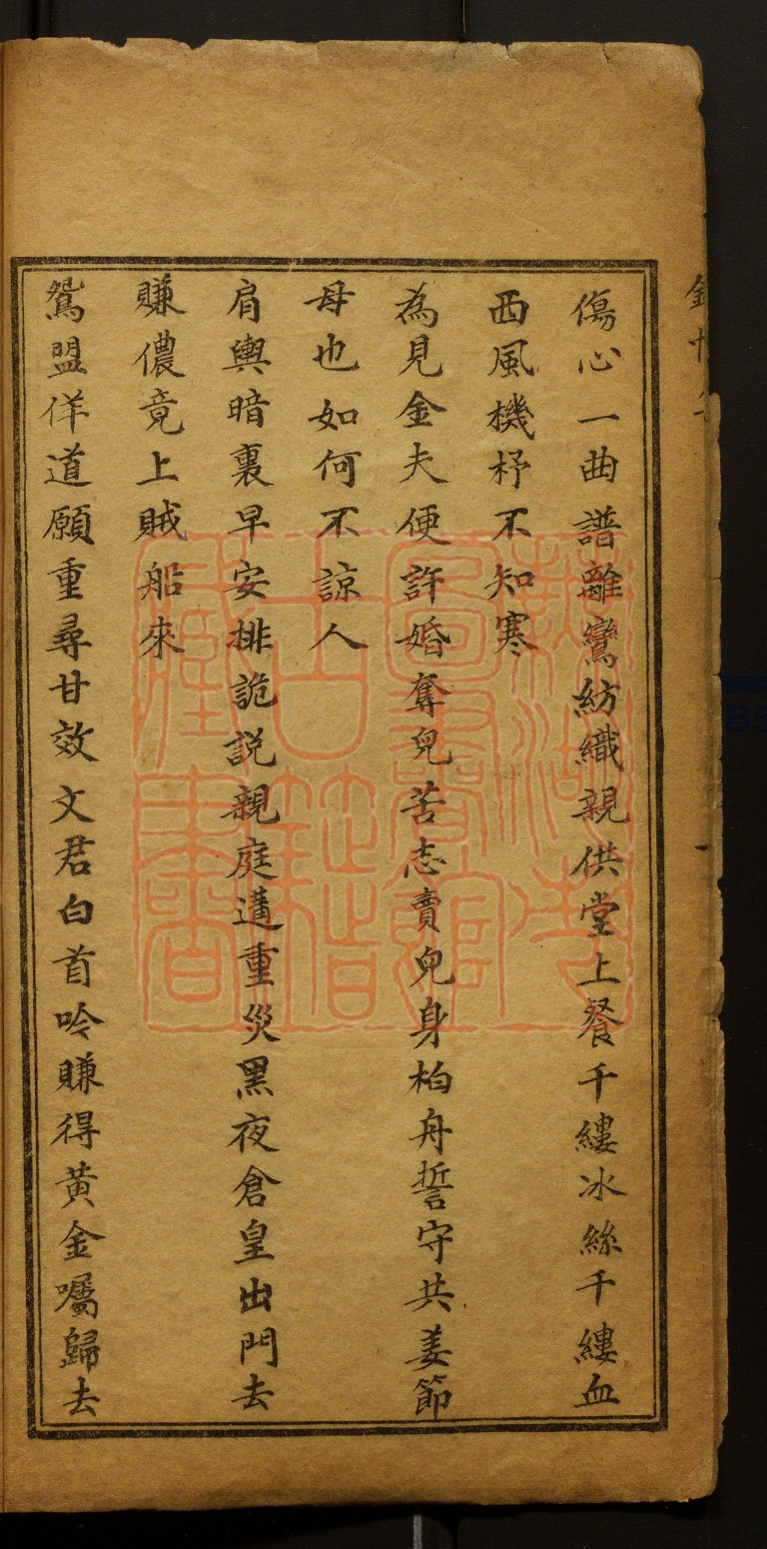 傷心一曲譜離鸞紡織親供堂上餐千縷冰絲千縷血
西風機杼不知寒
為見金夫便許婚奪兒苦志賣兒身柏舟誓守共姜節
母也如何不諒人
肩輿暗裏早安排詭説親庭遘重災黑夜倉皇出門去
賺儂竟上賊船來
鴛盟佯道願重尋甘效文君白首吟賺得黃金囑歸去